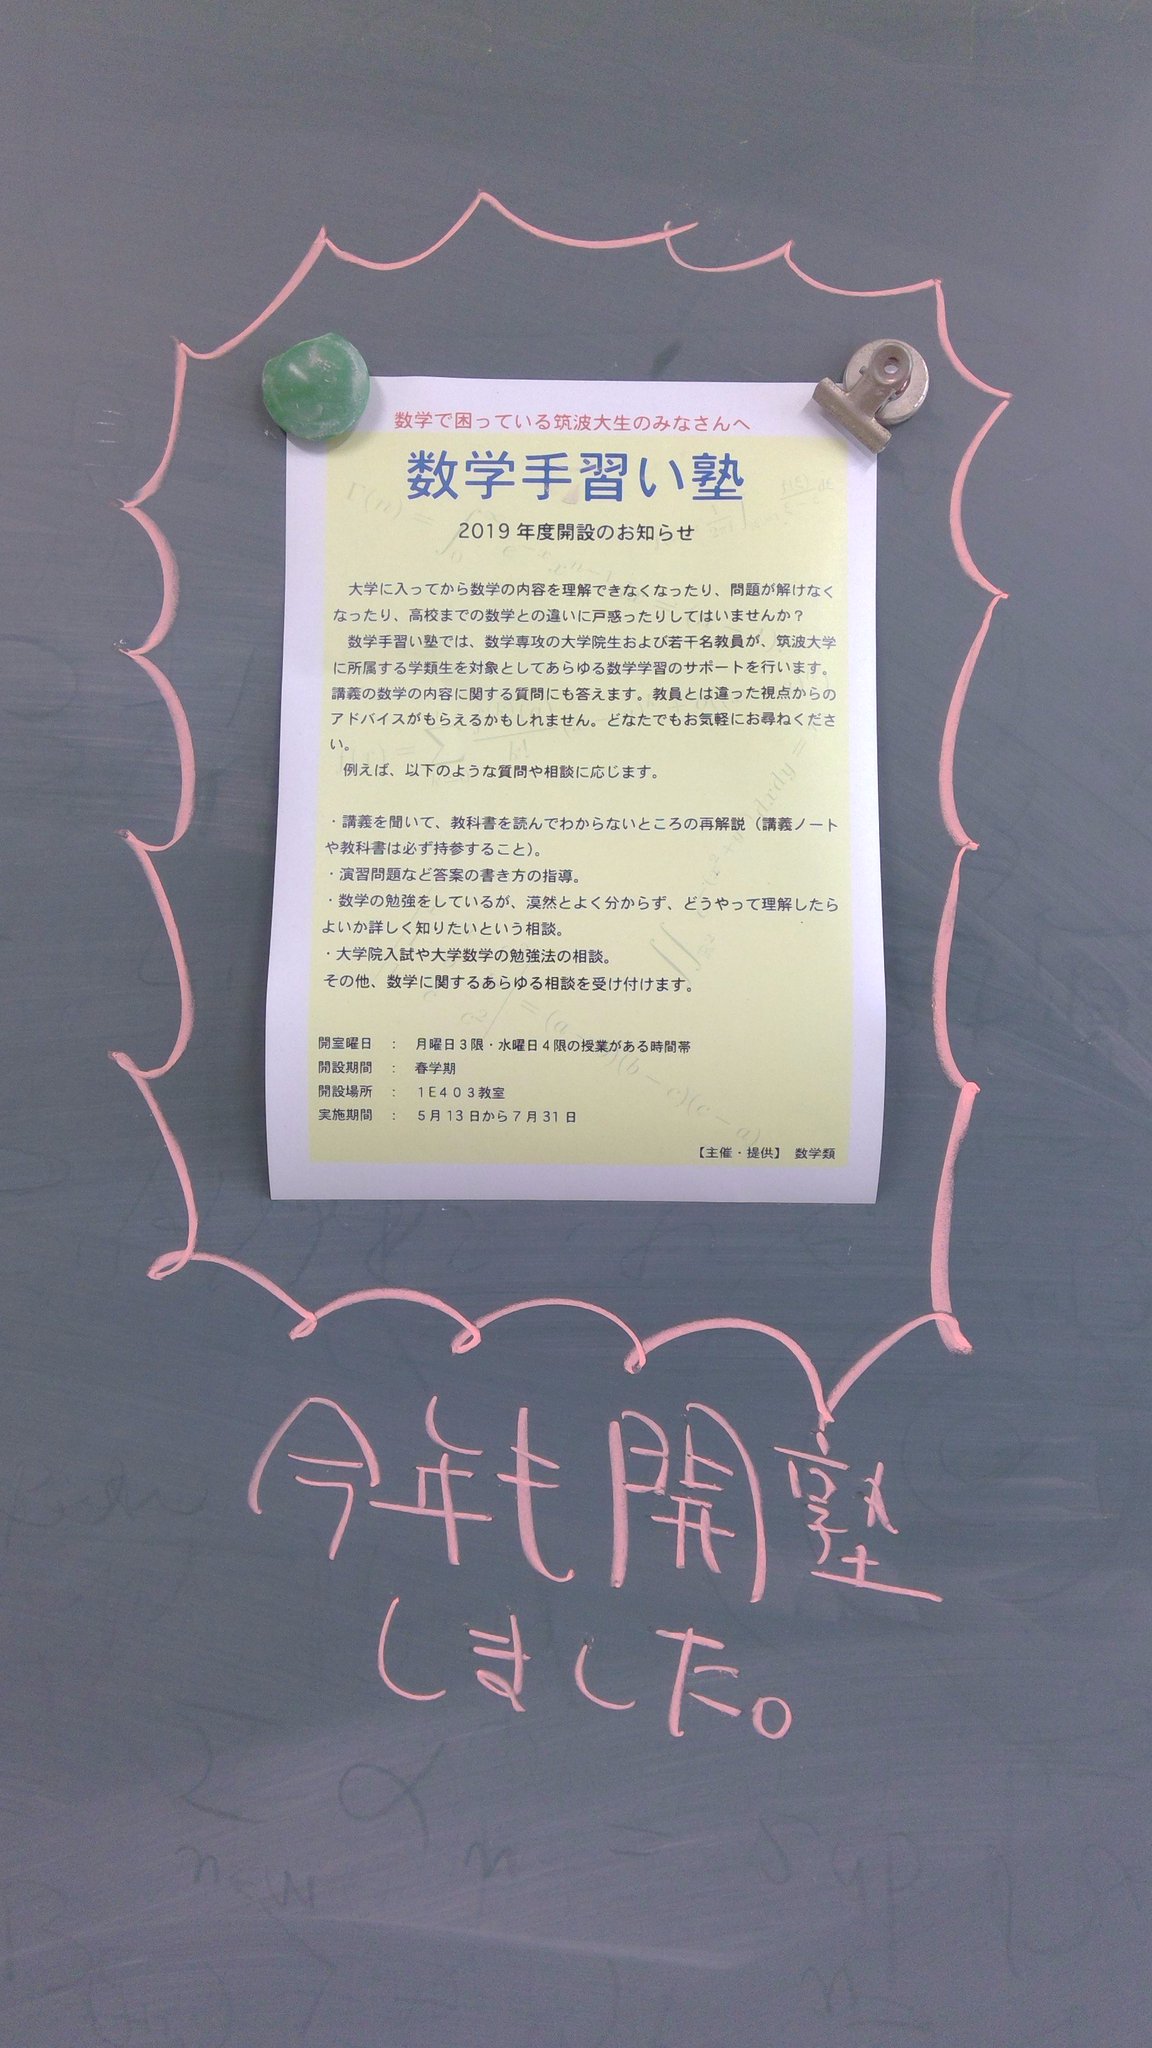 数学で困っている筑波大生のみなさんへ
数学手習い塾
2019 年度開設のお知らせ
大学に入ってから数学の内容を理解できなくなったり、問題が解けなく
なったり、高校までの数学との違いに戸惑ったりしてはいませんか？
数学手習い塾では、数学専攻の大学院生および若干名教員が、筑波大学
に所属する学類生を対象としてあらゆる数学学習のサポートを行います。
講義の数学の内容に関する質問にも答えます。教員とは違った視点からの
アドバイスがもらえるかもしれません。どなたでもお気軽にお尋ねくださ
い。
例えば、以下のような質問や相談に応じます。
・講義を聞いて、教科書を読んでわからないところの再解説（講義ノート
や教科書は必ず持参すること）。
・演習問題など答案の書き方の指導。
・数学の勉強をしているが、漠然とよく分からず、どうやって理解したら
よいか詳しく知りたいという相談。
・大学院入試や大学数学の勉強法の相談。
その他、数学に関するあらゆる相談を受け付けます。
開室曜日 ： 月曜日３限・水曜日４限の授業がある時間帯
開設期間 ： 春学期
開設場所 ： １E４０３教室
実施期間 ： ５月 13 日から７月 31 日
【主催・提供】 数学類
今年も開塾
しました。